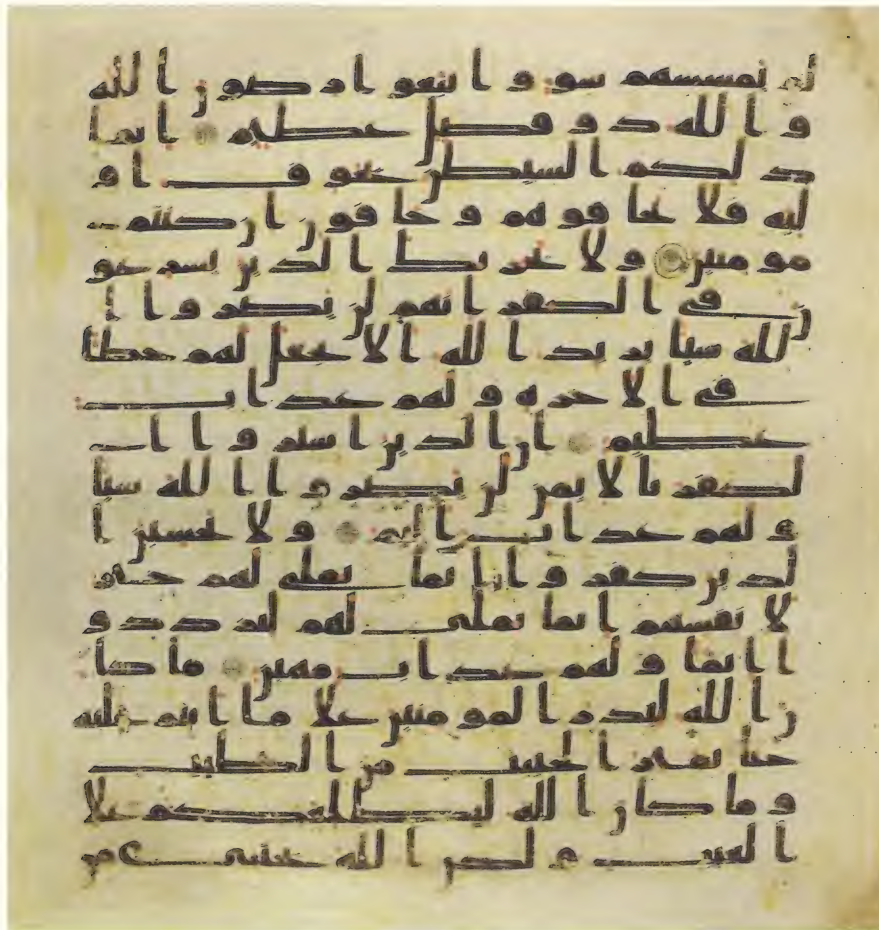 لم يمسسهم سو و اتبعوا رضون الله
و الله ذو فضل عظيم انما
ذلكم الشيطن يخوف او
ليه فلا تخافوهم و خافون ان كنتم
مومنين ولا يحزنك الذين يسرعو
ن في الكفر انهم لن يضروا ا
لله شيا يريد الله الا يجعل لهم حظا
في الاخره و لهم عذاب
عظيم ان الذين اشتروا ا
لكفر بالايمن لن يضروا الله شيا
و لهم عذاب اليم و لا يحسبن ا
لذين كفروا انما نملي لهم خير
لا نفسهم انما نملي لهم ليزددو
ا اثما و لهم عذاب مهين ما كا
ن الله ليذر المومنين علا ما انتم عليه
حتا يميز الخبيث من الطيب
و ما كان الله ليطلعكم علا
الغيب و لكن الله يجتبي من